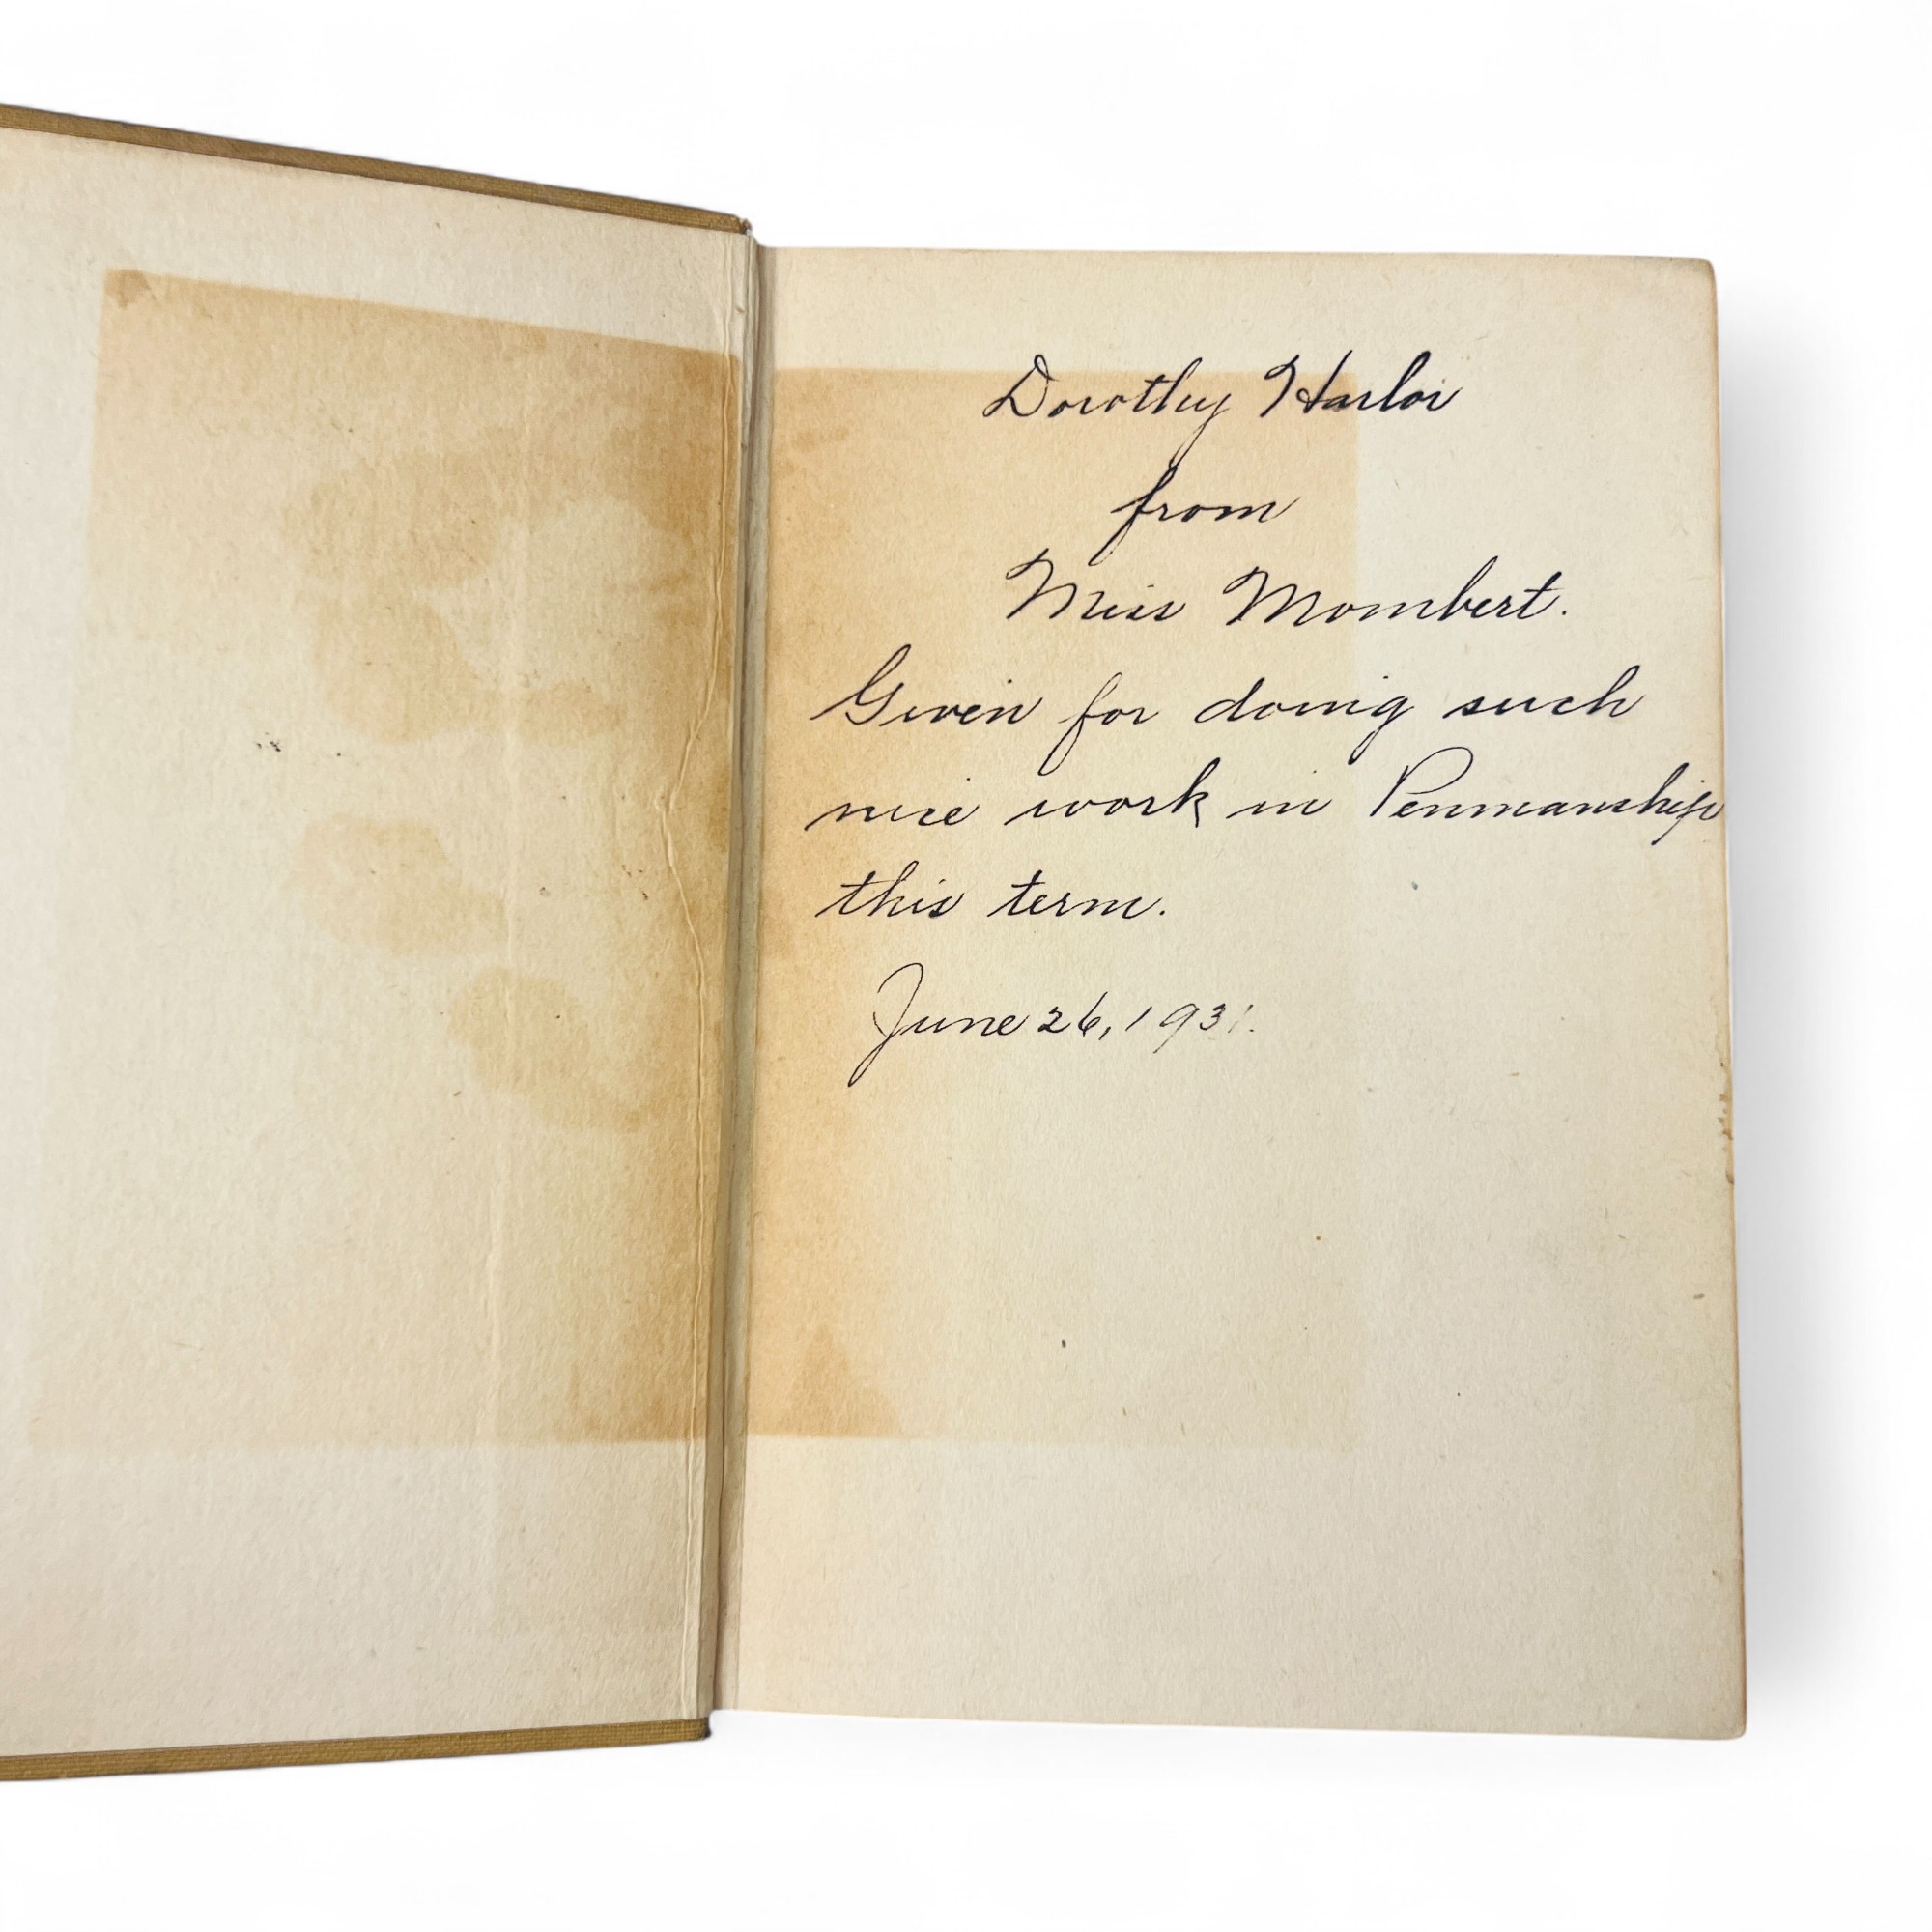 Dorothy Harloi
from
Miss Mombert.
Given for doing such
nice work in Penmanship
this term.
June 26, 1931.